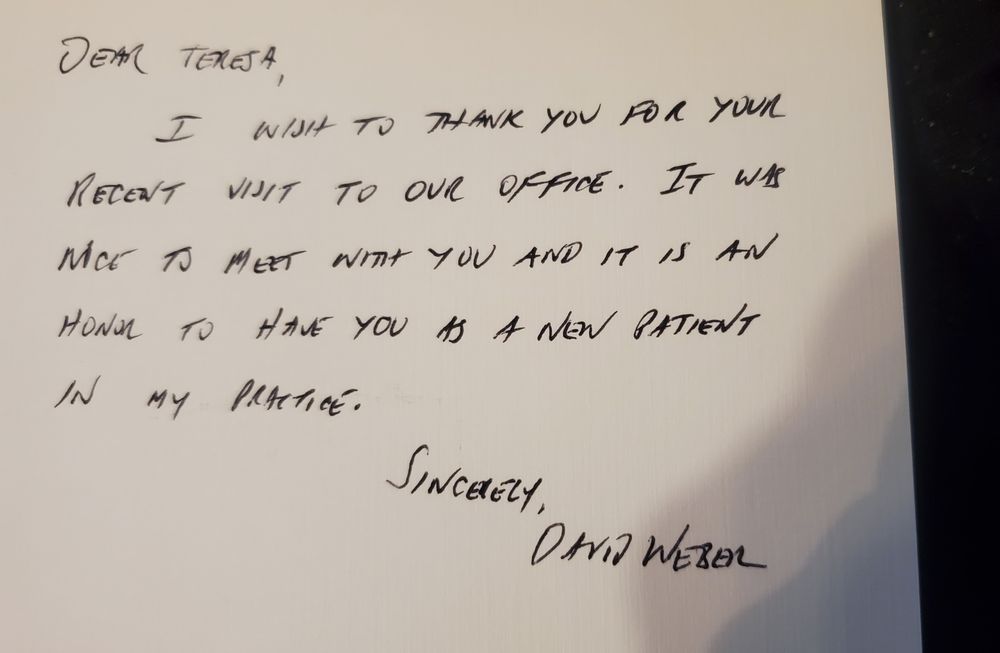 DEAR TERESA,
I WISH TO THANK YOU FOR YOUR
RECENT VISIT TO OUR OFFICE. IT WAS
NICE TO MEET WITH YOU AND IT IS AN
HONOR TO HAVE YOU AS A NEW PATIENT
IN MY PRACTICE.
SINCERELY,
DAVID WEBER